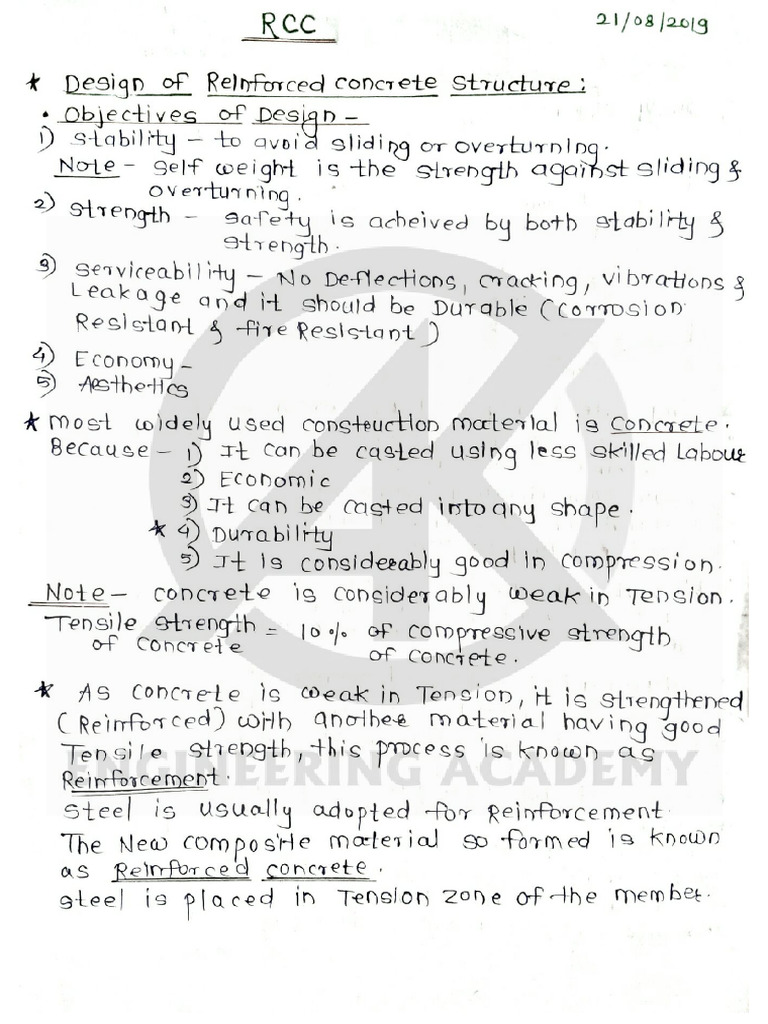 RCC
21/08/2019
* Design of Reinforced concrete Structure:
• Objectives of Design -
1) Stability - to avoid sliding or overturning.
Note - Self weight is the strength against sliding &
overturning.
2) Strength - Safety is acheived by both stability &
strength.
3) Serviceability - No Deflections, cracking, vibrations &
Leakage and it should be Durable (Corrosion
Resistant & fire Resistant)
4) Economy -
5) Aesthetics
* most widely used construction material is Concrete.
Because - 1) It can be casted using less skilled Labour
2) Economic
3) It can be casted into any shape.
* 4) Durability
5) It is considerably good in compression.
Note - concrete is considerably weak in Tension.
Tensile strength = 10% of compressive strength
of concrete of concrete.
* As concrete is weak in Tension, it is strengthened
(Reinforced) with another material having good
Tensile strength, this process is known as
ENGINEERING ACADEMY
Reinforcement.
Steel is usually adopted for Reinforcement
The New composite material so formed is known
as Reinforced concrete.
Steel is placed in Tension zone of the member.